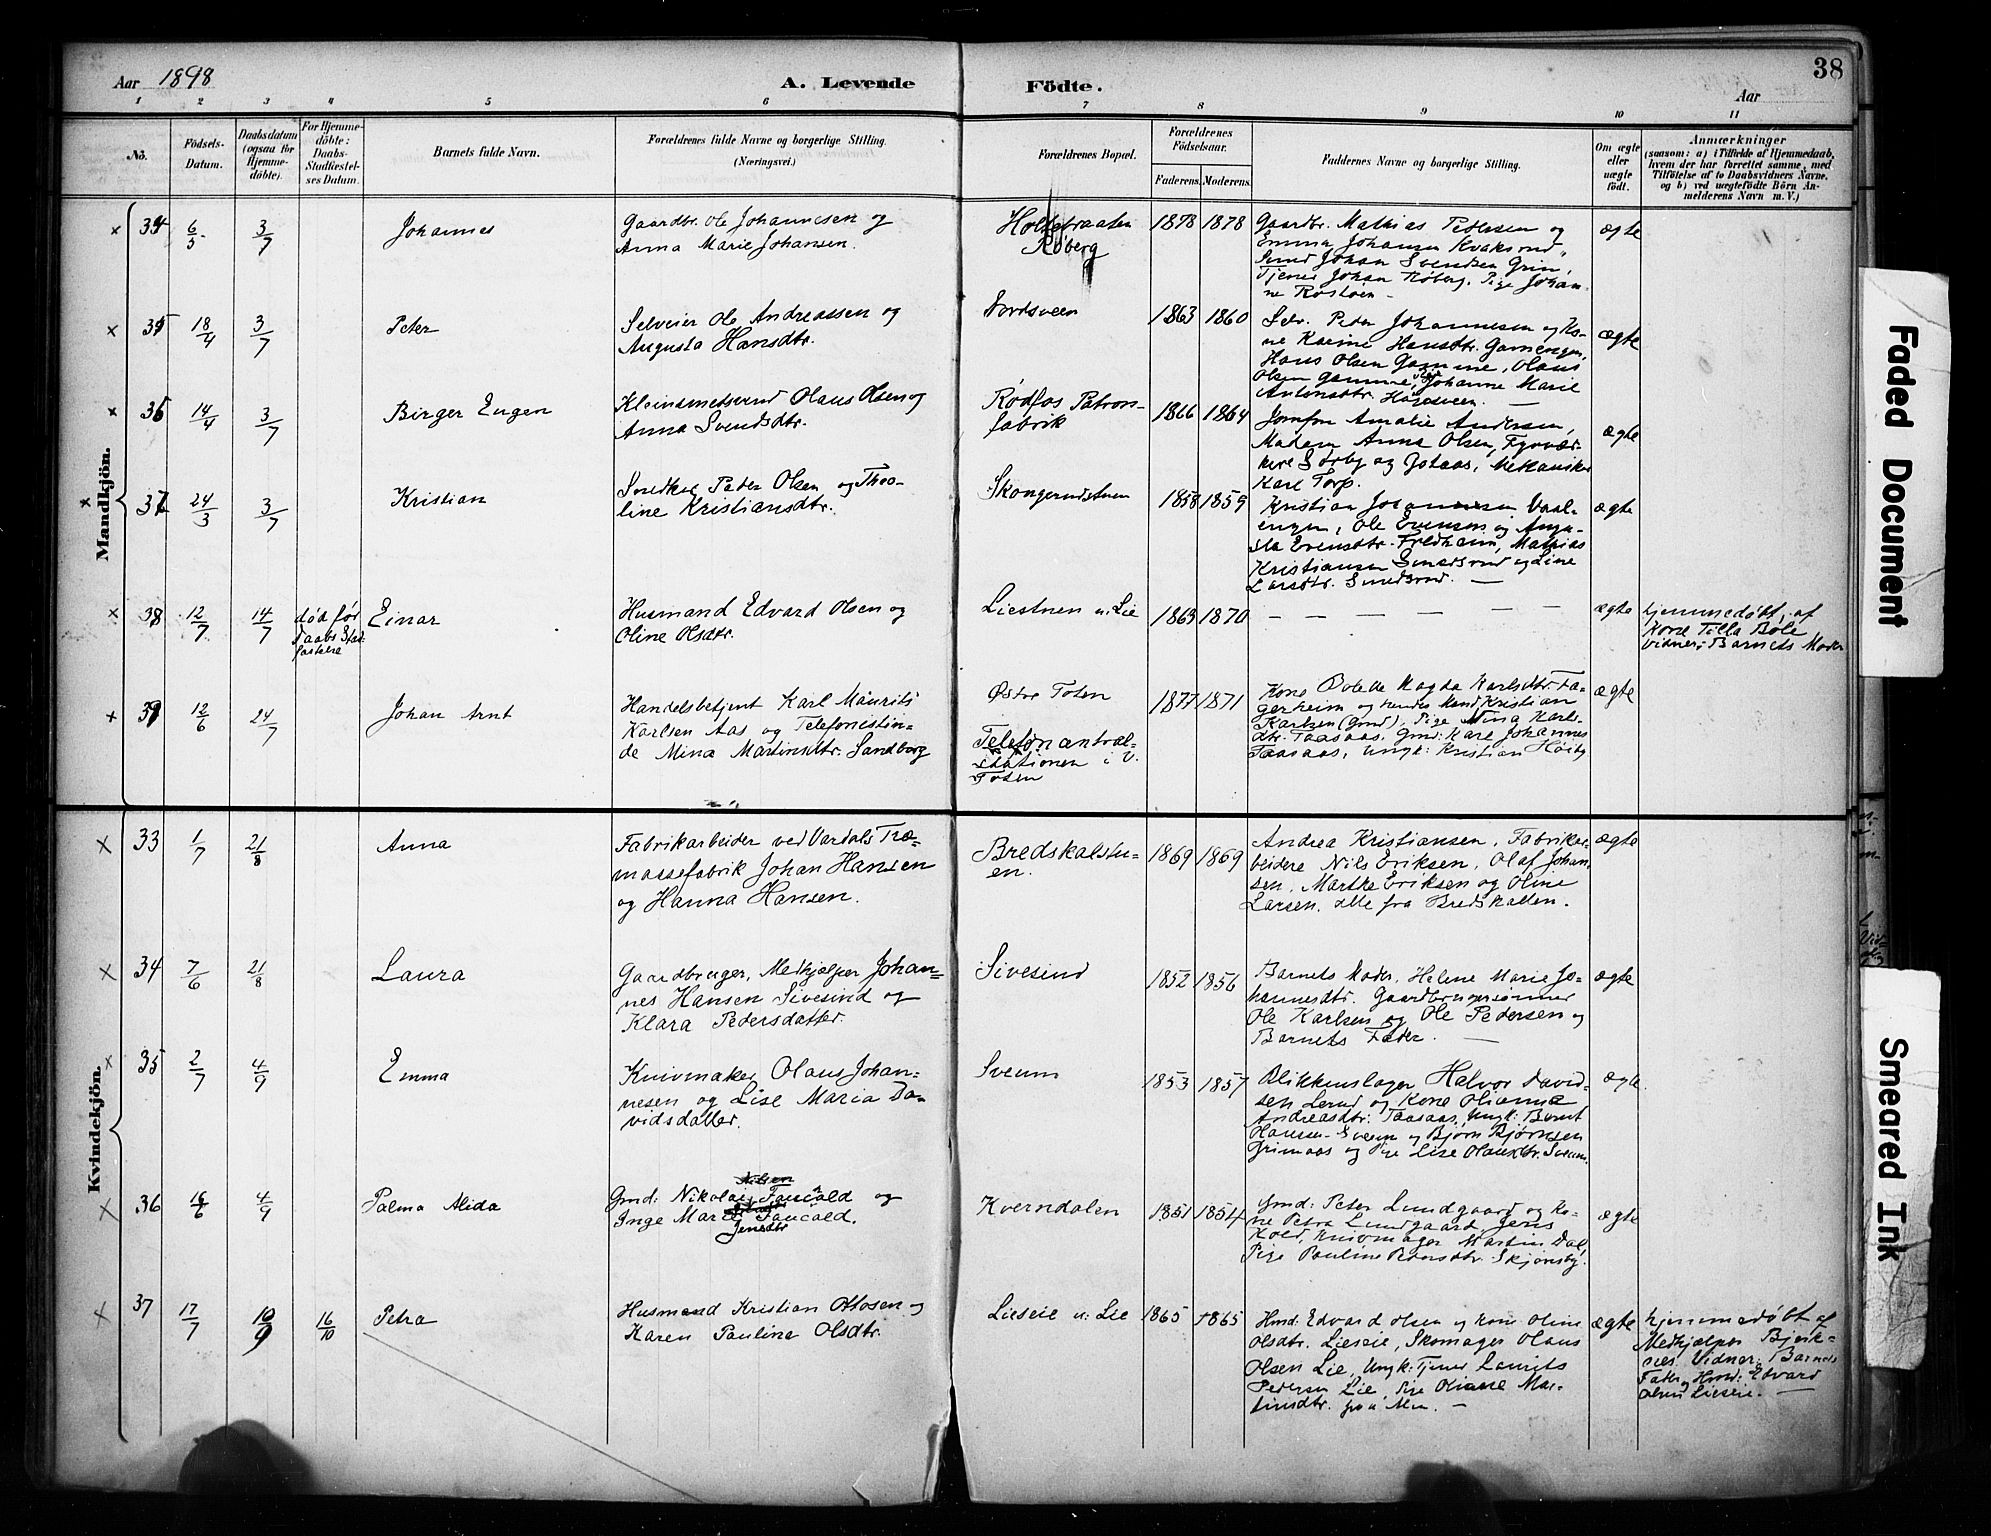 Aar 1898
A. Levende Födte.
Aar
38
1 2 3 4 5 6 7 8 9 10 11
No.
Födsels-
Datum.
Daabsdatum
(ogsaa för
Hjemme-
döbte).
For Hjemme-
döbte:
Daabs-
Stadfæstel-
ses Datum.
Barnets fulde Navn.
Forældrenes fulde Navne og borgerlige Stilling.
(Næringsvei.)
Forældrenes Bopæl.
Forældrenes
Födselsaar.
Faderens. Moderens.
Faddernes Navne og borgerlige Stilling.
Om ægte
eller
uægte
födt.
Anmærkninger
(saasom: a) i Tilfælde af Hjemmedaab,
hvem der har forrettet samme, med
Tilföielse af to Daabsvidners Navne,
og b) ved uægtefödte Börn An-
melderens Navn m. V.)
Mandkjön.
× 34 6/5 3/7 Johannes
Gaardbr. Ole Johannesen og
Anna Marie Johansen.
Røberg
1878 1878
Gaardbr. Mathias Pedersen og
Emma Johansen Kvaksrud,
Smed Johan Svendsen Grin,
Tjener Johan Røberg. Pige Johan-
ne Rostøen -
ægte
× 35 18/4 3/7 Peter
Selveier Ole Andreassen og
Augusta Hansdtr.
Nordsveen
1863 1860
Selv. Peder Johannesen og Ko-
ne Karine Hansdtr. Gamengen,
Hans Olsen Gamme, Olaus
Olsen Gamme, Johanne Marie
Antonsdtr.
ægte
× 36 14/4 3/7 Birger Eugen
Kleinsmedsvend Olaus Olsen og
Anna Svendsdtr.
Rødfos Patron-
fabrik
1866 1864
Jomfru Amalie Andersen,
Madam Anna Olsen, Fyrvær-
kere Sørby og Johaas, Mekaniker
Karl Torp.
ægte
× 37 24/3 3/7 Kristian
Snedker Peder Olsen og Theo-
line Kristiansdtr.
1858 1859
Kristian Johannesen Vaal-
engen, Ole Evensen og Augu-
sta Evensdtr. Fredheim, Mathias
Kristiansen Smedsrud og Line
Larsdtr. Smedsrud. -
ægte
× 38 12/7 14/7 død før
Daabs Stad-
fæstelse
Einar
Husmand Edvard Olsen og
Oline Olsdtr.
Liestuen u. Lie
1863 1870
- - - - - -
ægte
hjemmedøbt af
Kone Tilla Bøle
Vidner: Barnets Moder
× 39 12/6 24/7 Johan Arnt
Handelsbetjent Karl Maurits
Karlsen Aas og Telefonistin-
de Mina Martinsdtr. Sandberg
Østre Toten
Telefoncentral-
stationen i V.
Toten
1877 1871
Kone Bolette Magda Karlsdtr. Fa-
gerheim og hendes Mand Kristian
Karlsen (Gmd), Pige Nina Karls-
dtr. Taasaas, Gmd: Karl Johannes
Taasaas, Ungk: Kristian Høiby
ægte
Kvindekjön.
× 33 1/7 21/8 Anna
Fabrikarbeider ved Vardals Træ-
massefabrik Johan Hansen
og Hanna Hansen.
Bredskalstu-
en.
1869 1869
Andrea Kristiansen, Fabrikar-
beidere Nils Eriksen, Olaf Johan-
sen, Marthe Eriksen og Oline
Larsen, alle fra Bredskallen.
ægte
× 34 7/6 21/8 Laura
Gaardbruger, Medhjælper Johan-
nes Hansen Sivesind og
Klara Pedersdatter.
Sivesind
1852 1856
Barnets Moder, Helene Marie Jo-
hannesdtr. Gaardbrugersønner
Ole Karlsen og Ole Pedersen og
Barnets Fader. -
ægte
× 35 2/7 4/9 Emma
Knivmaker Olaus Johan-
nesen og Lise Maria Da-
vidsdatter.
Sveum
1853 1857
Blikkenslager Halvor David-
sen Lerud og Kone Olianna
Andreasdtr. Taasaas, Ungk: Bernt
Hansen Sveum og Bjørn Bjørnsen
Grimaas og Pige Lise Olausdtr. Sveum.
ægte
× 36 16/6 4/9 Palma Alida
Nilsen
Gmd: Nikolai Faucald og
Inge Marie Faucald.
Jensdtr
Kverndalen
1851 1854
Gmd: Peter Lundgaard og Ko-
ne Petra Lundgaard, Jens
Kold, Knivmager Martin Dal,
Pige Pauline Skjønsby.
ægte
× 37 17/7 10/9 16/10 Petra
Husmand Kristian Ottosen og
Karen Pauline Olsdtr.
Lieseie u: Lie
1865 1865
Hmd: Edvard Olsen og Kone Oline
Olsdtr. Lieseie, Skomager Olaus
Olsen Lie, Ungk: Tjener Laurits
Pedersen Lie, Pige Oliane Mar-
tinsdtr. fra -
ægte
hjemmedøbt af
Medhjælper Bjerk-
nes Vidner: Barnets
Fader og Hmd: Edvard
Olsen Lieseie. -
Faded Document
Smeared Ink